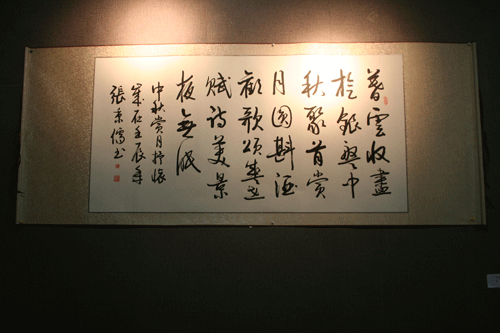 暮雲收盡
扵銀盤中
秋聚首賞
月圓斟酒
歡歌頌盛世
賦詩美景
夜無眠
中秋賞月抒懷
歲在壬辰年
張秉儒書